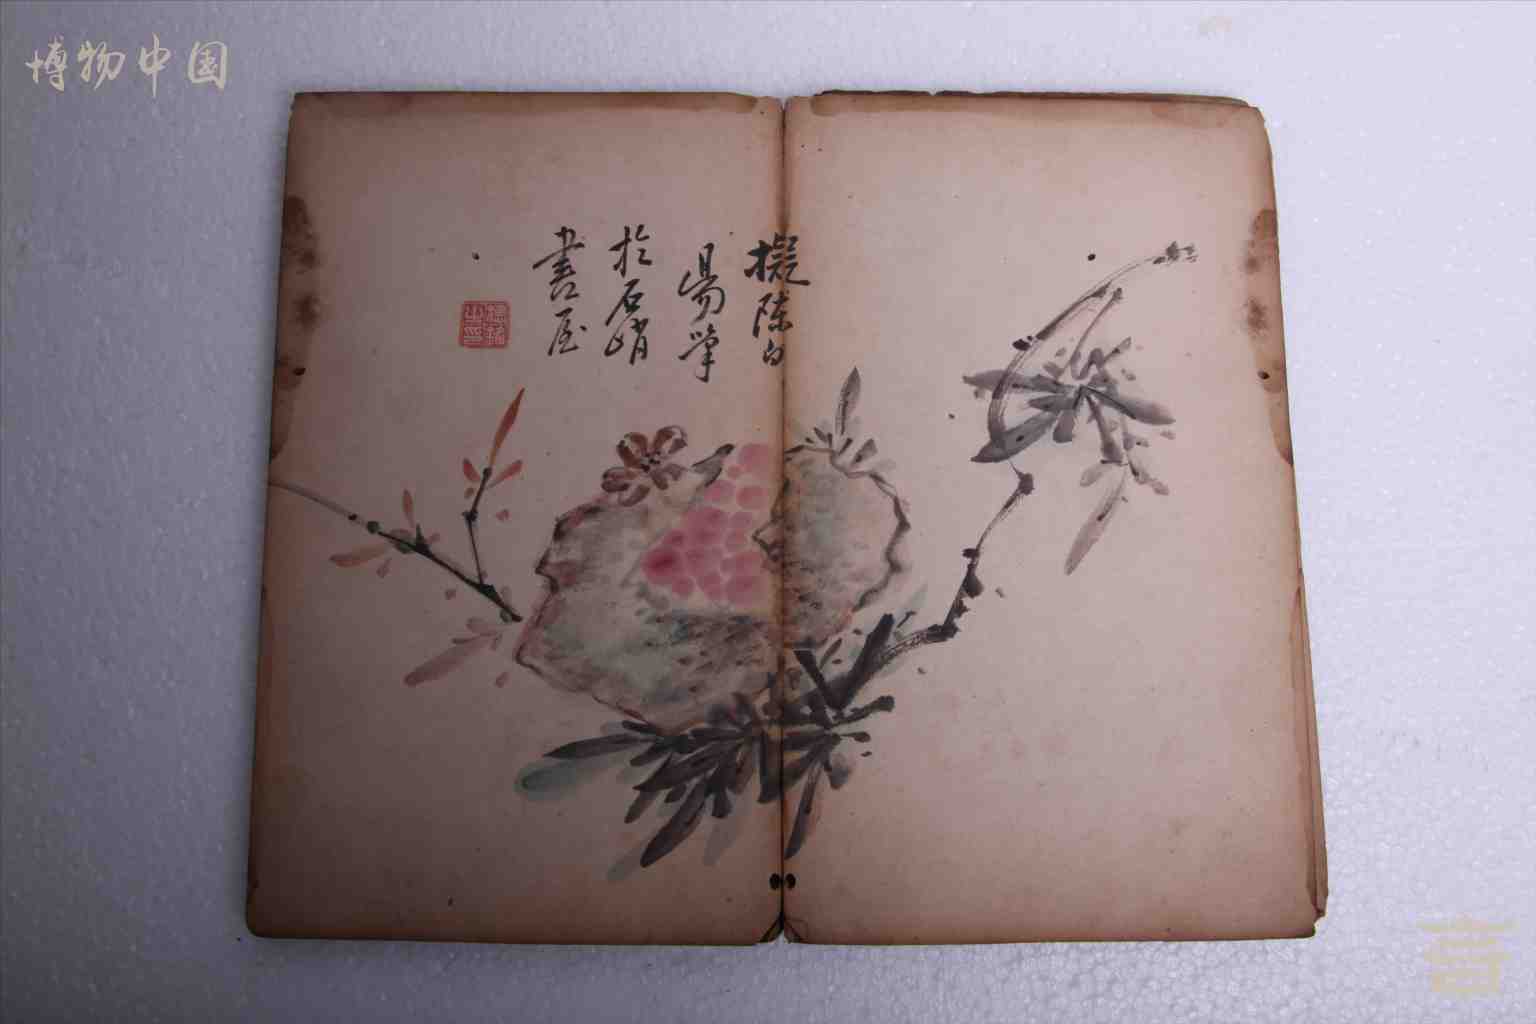 博物中国
擬陳白
陽筆
於石峭
書屋